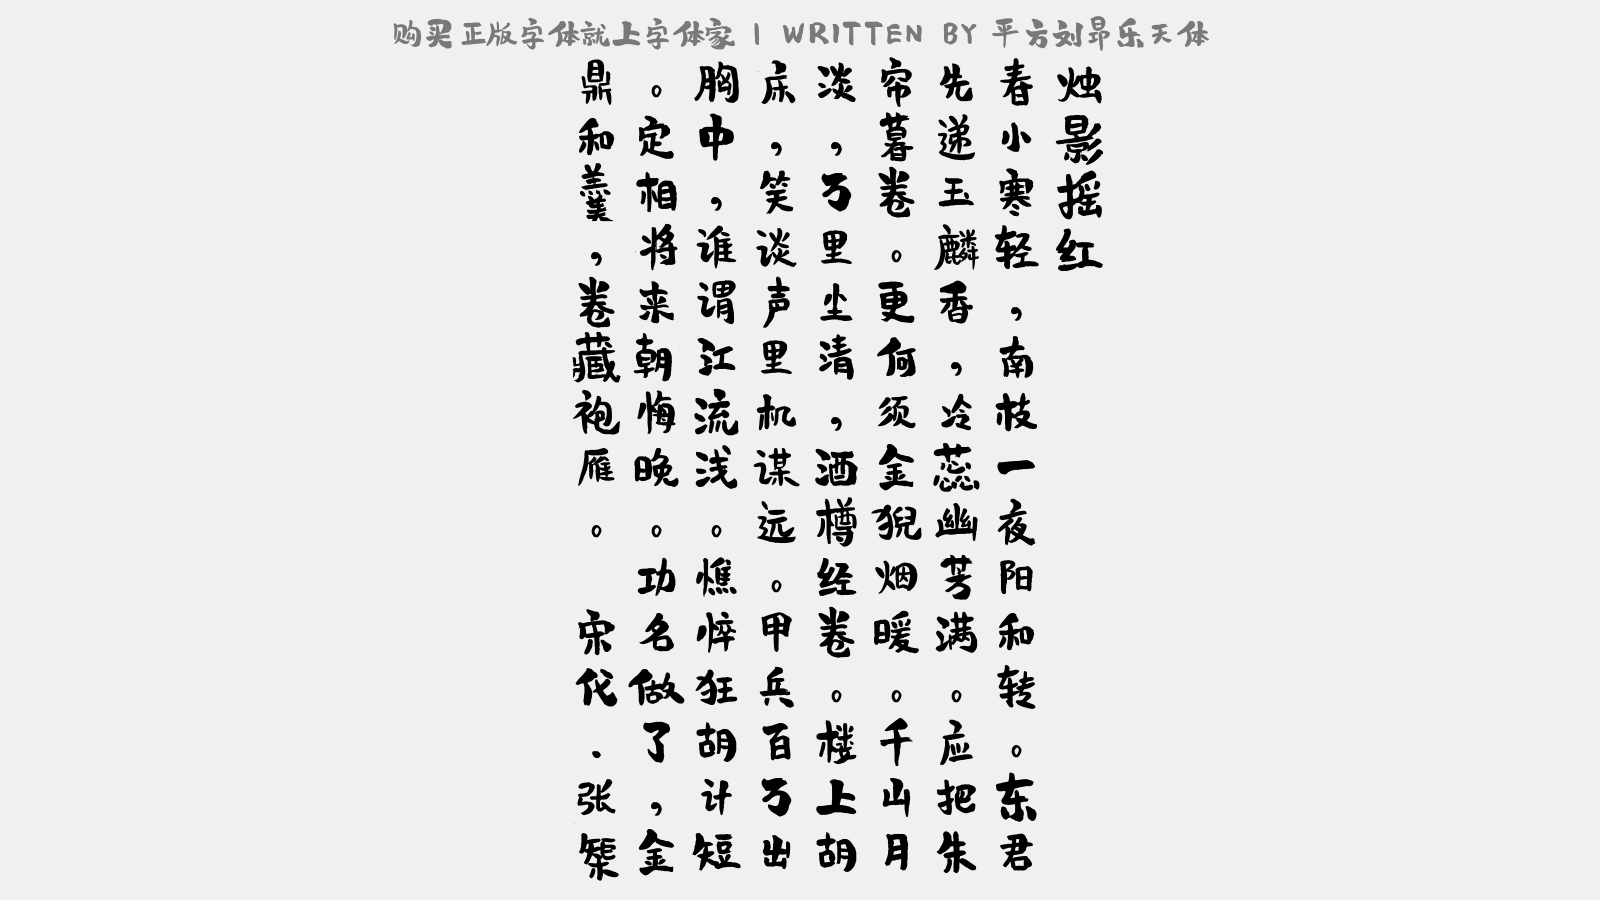 购买正版字体就上字体家 | WRITTEN BY 平方刘昂乐天体
烛影摇红
春小寒轻，南枝一夜阳和转。东君
先递玉麟香，冷蕊幽芳满。应把朱
帘暮卷。更何须金猊烟暖。千山月
淡，万里尘清，酒樽经卷。楼上胡
床，笑谈声里机谋远。甲兵百万出
胸中，谁谓江流浅。憔悴狂胡计短
。定相将来朝悔晚。功名做了，金
鼎和羹，卷藏袍雁。 宋代．张榘